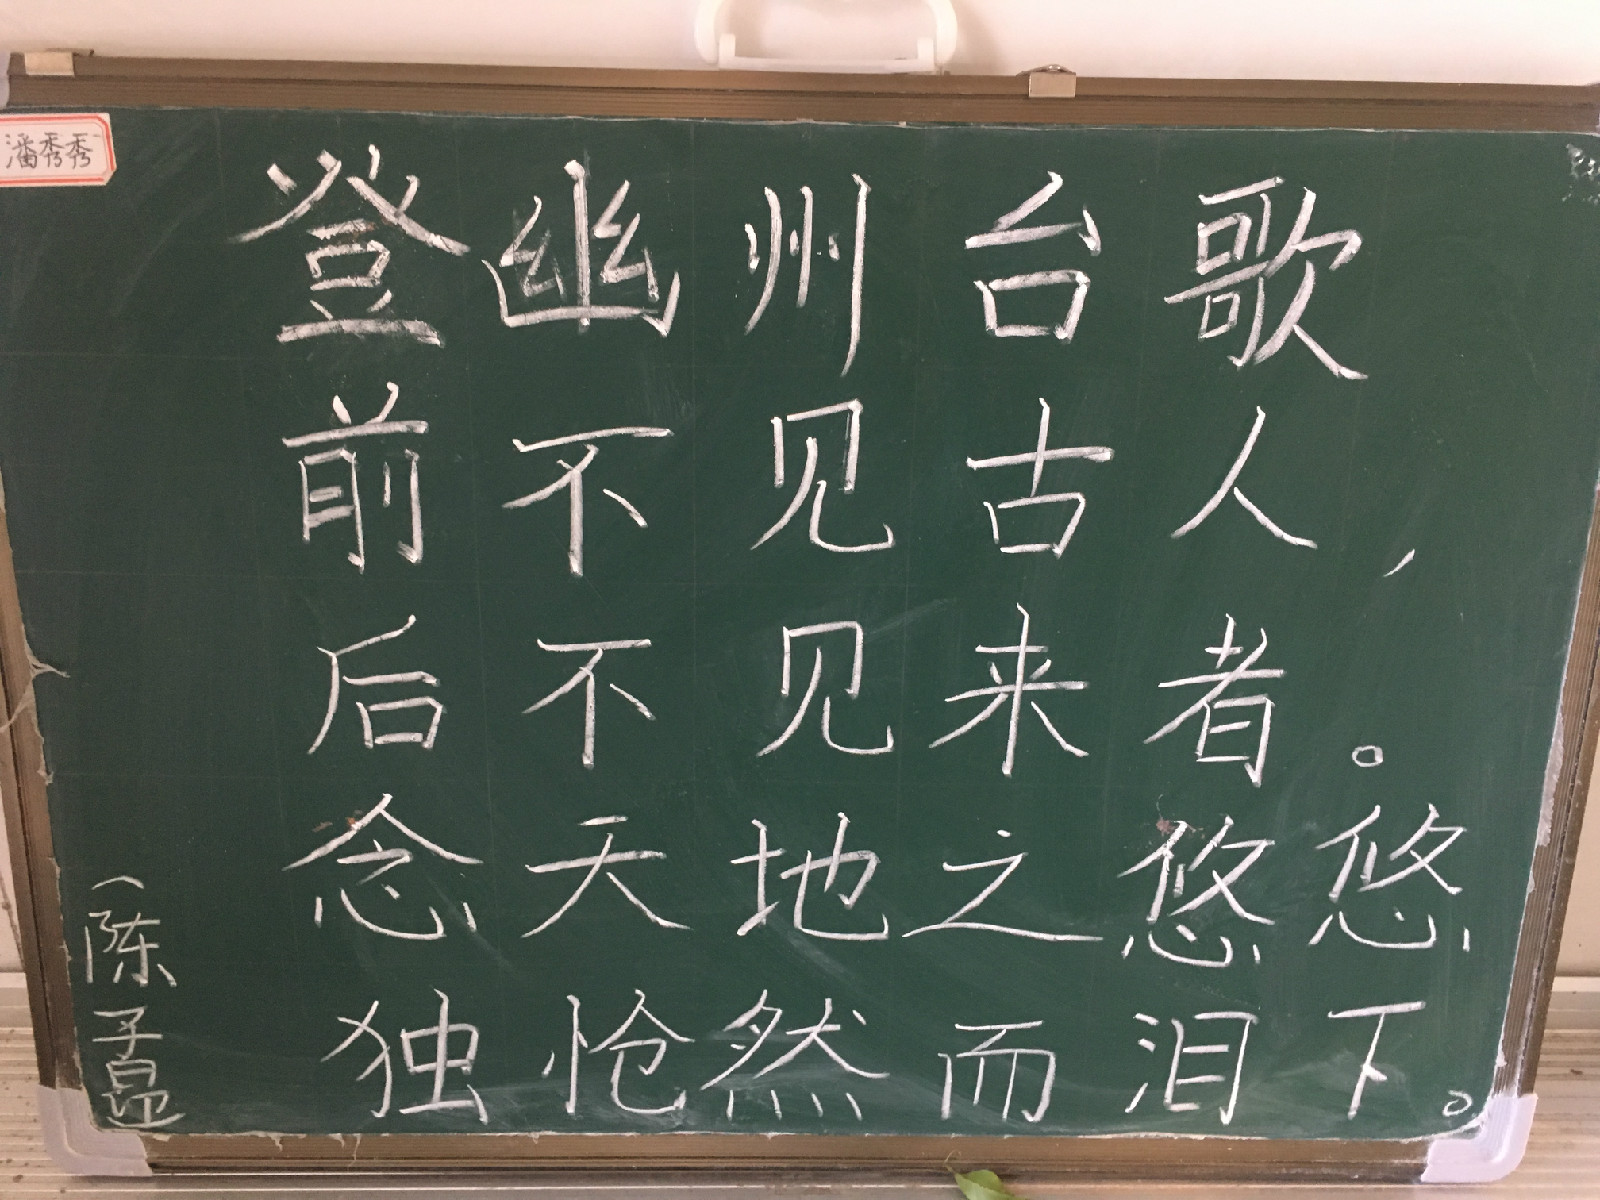 潘秀秀
登幽州台歌
前不见古人，
后不见来者。
念天地之悠悠
独怆然而泪下。
（陈子昂